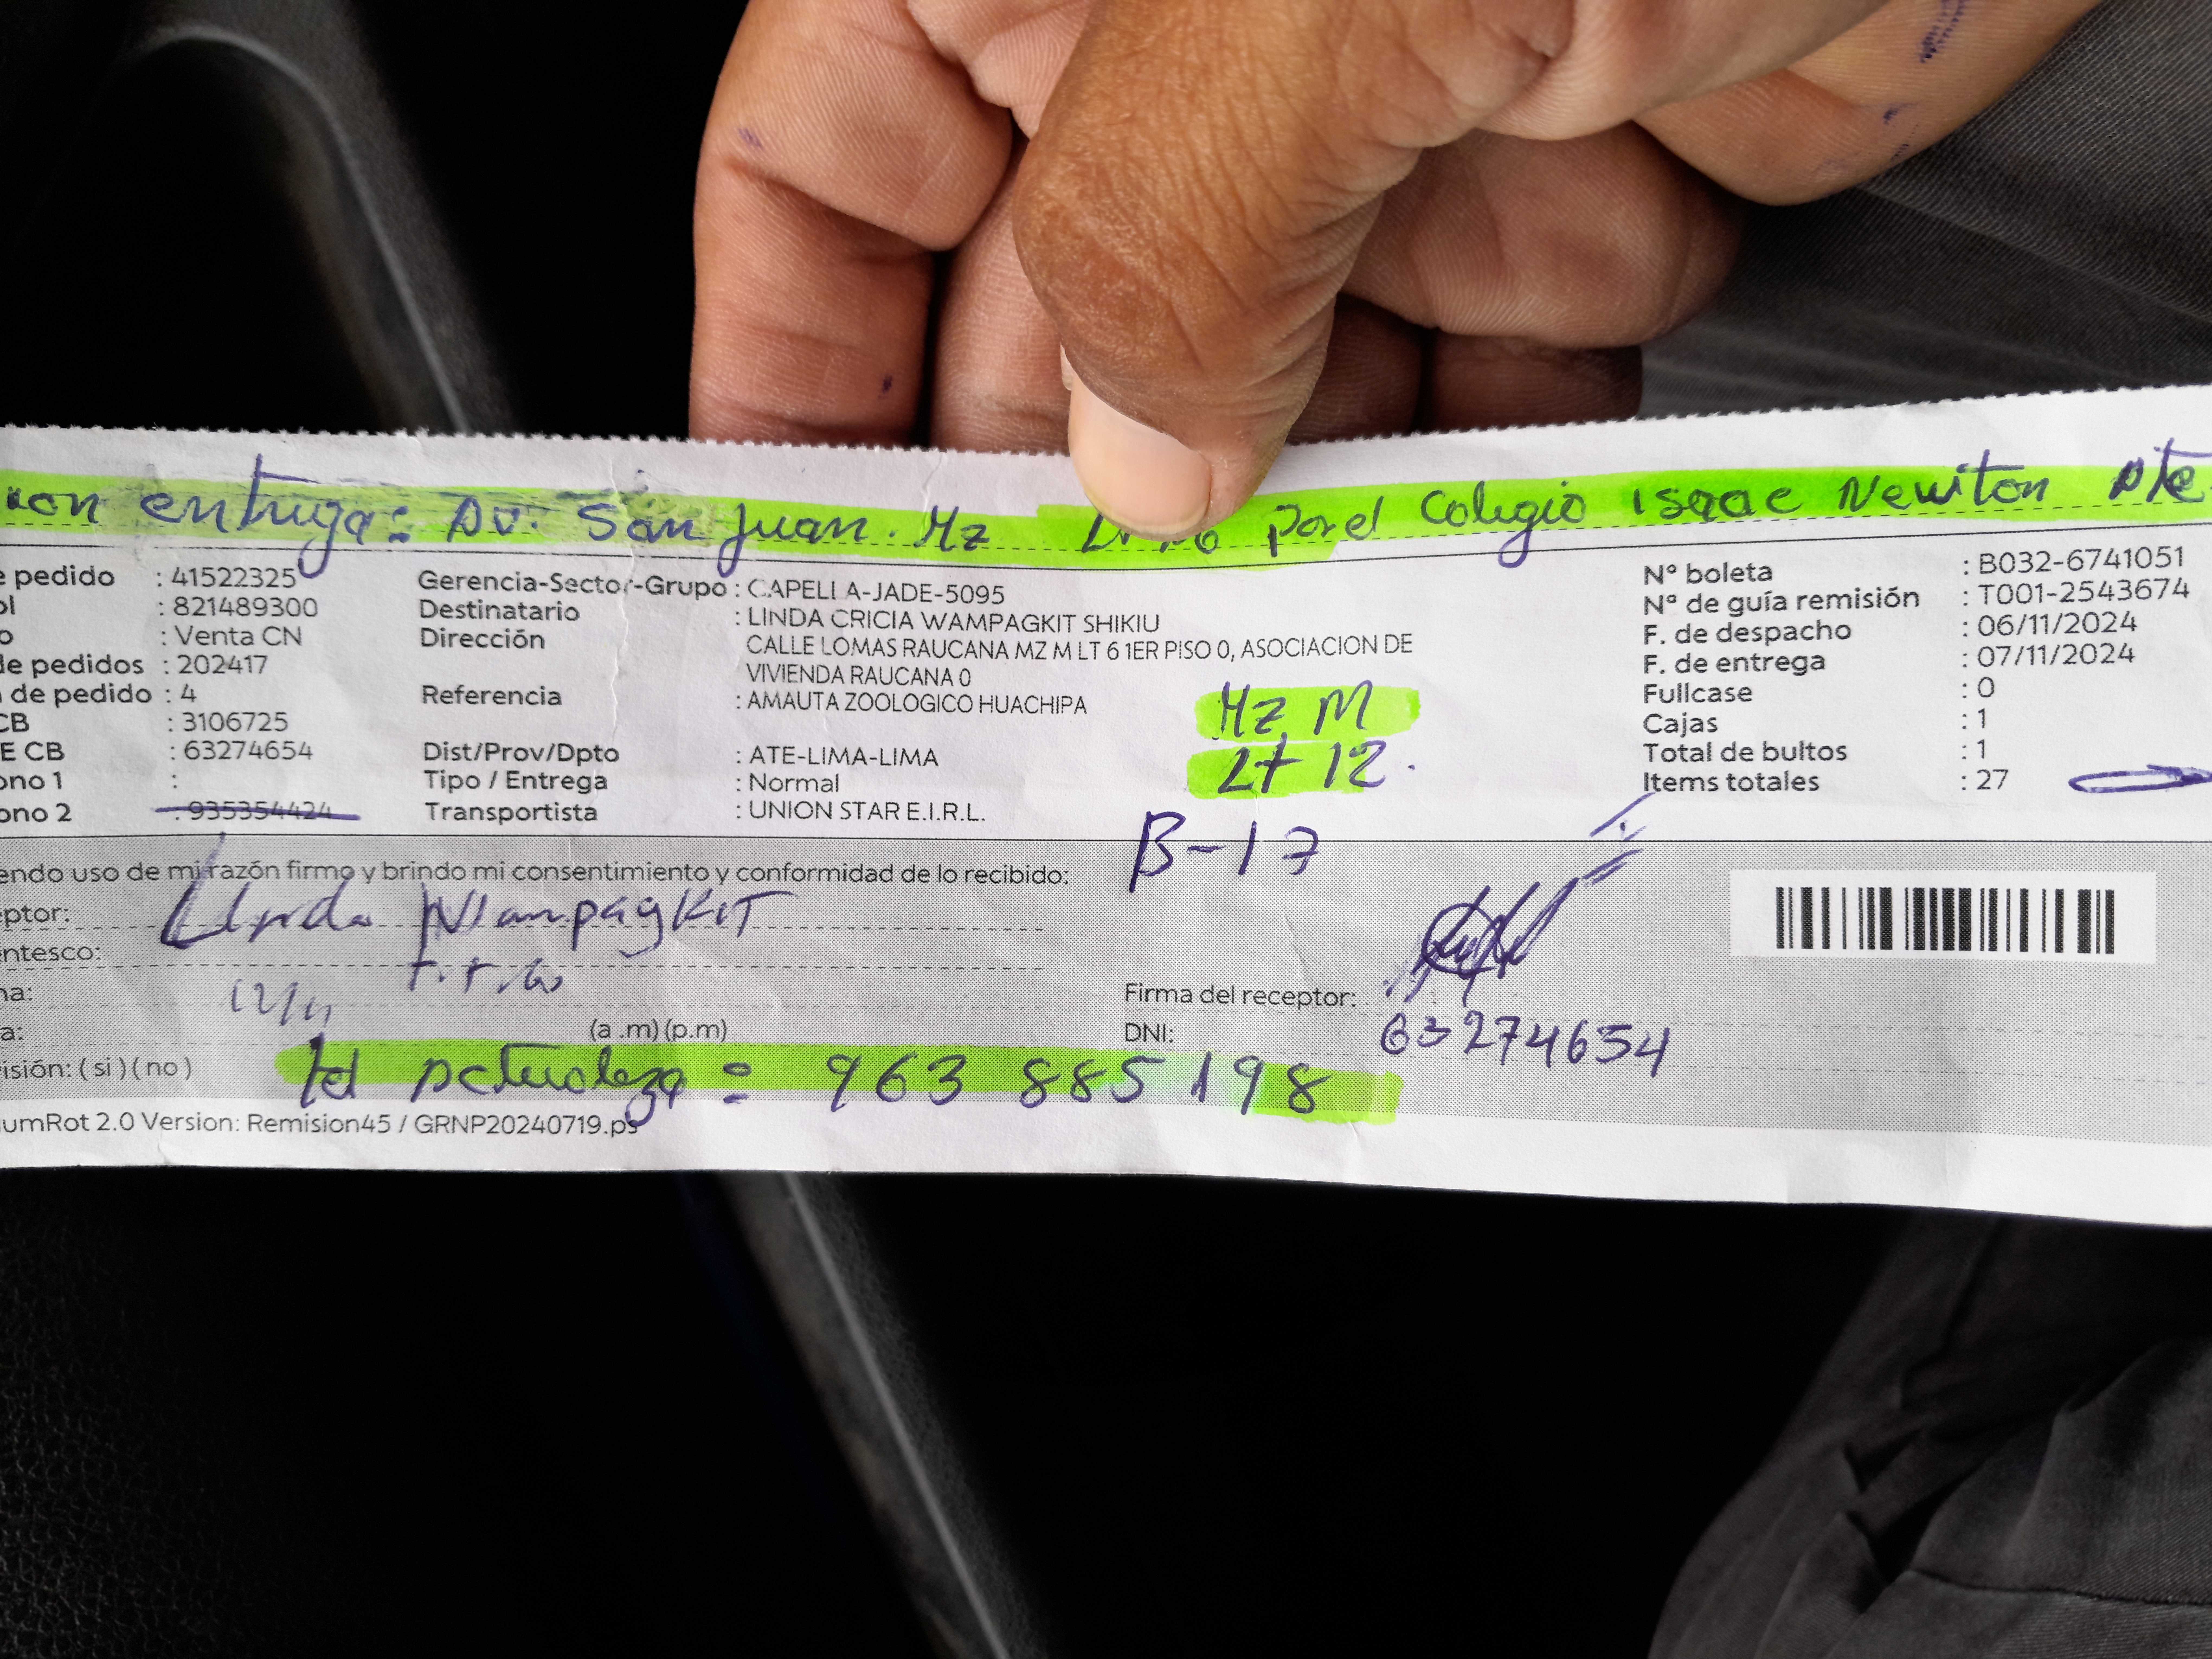 ion entrega: Av. San Juan. Mz por el Colegio Isaac Newton Ate
e pedido : 41522325 Gerencia-Sector-Grupo : CAPELLA-JADE-5095 N° boleta : B032-6741051
ol : 821489300 Destinatario : LINDA CRICIA WAMPAGKIT SHIKIU N° de guía remisión : T001-2543674
o : Venta CN Dirección CALLE LOMAS RAUCANA MZ M LT 6 1ER PISO 0, ASOCIACION DE F. de despacho : 06/11/2024
de pedidos : 202417 VIVIENDA RAUCANA 0 F. de entrega : 07/11/2024
de pedido : 4 Referencia : AMAUTA ZOOLOGICO HUACHIPA Mz M Fullcase : 0
CB : 3106725 Cajas : 1
E CB : 63274654 Dist/Prov/Dpto : ATE-LIMA-LIMA Lt 12. Total de bultos : 1
ono 1 : Tipo / Entrega : Normal Items totales : 27
ono 2 : 935354424 Transportista : UNION STAR E.I.R.L.
B-17
endo uso de mi razón firmo y brindo mi consentimiento y conformidad de lo recibido:
eptor: Linda Wampagkit
entesco:
na: 12/11 Firma del receptor:
a: (a .m) (p.m) DNI: 63274654
isión: ( si ) ( no )
963 885 198
umRot 2.0 Version: Remision45 / GRNP20240719.ps